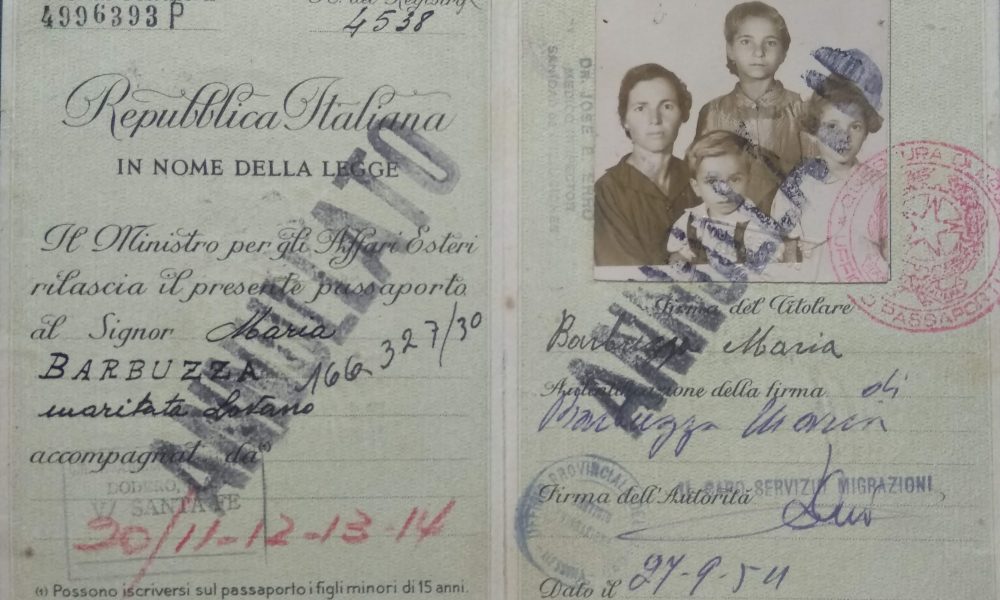 4996393 P
N. del Registro
4538
Repubblica Italiana
IN NOME DELLA LEGGE
Il Ministro per gli Affari Esteri
rilascia il presente passaporto
al Signor Maria
BARBUZZA 166327/30
maritata
accompagnat da (1)
ANNULLATO
DODERO,
V/ SANTA FE
30/11-12-13-14
(1) Possono iscriversi sul passaporto i figli minori di 15 anni.
DR. JOSE E.
MEDICO INSPECTOR
ANNULLATO
Firma del Titolare
Barbuzza Maria
Autenticazione della firma di
Barbuzza Maria
Firma dell'Autorità
IL CAPO SERVIZIO MIGRAZIONI
Dato il 27-9-54